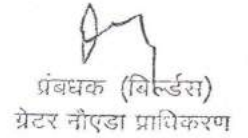 प्रंबधक (बिर्ल्डस)
ग्रेटर नौएडा प्राधिकरण